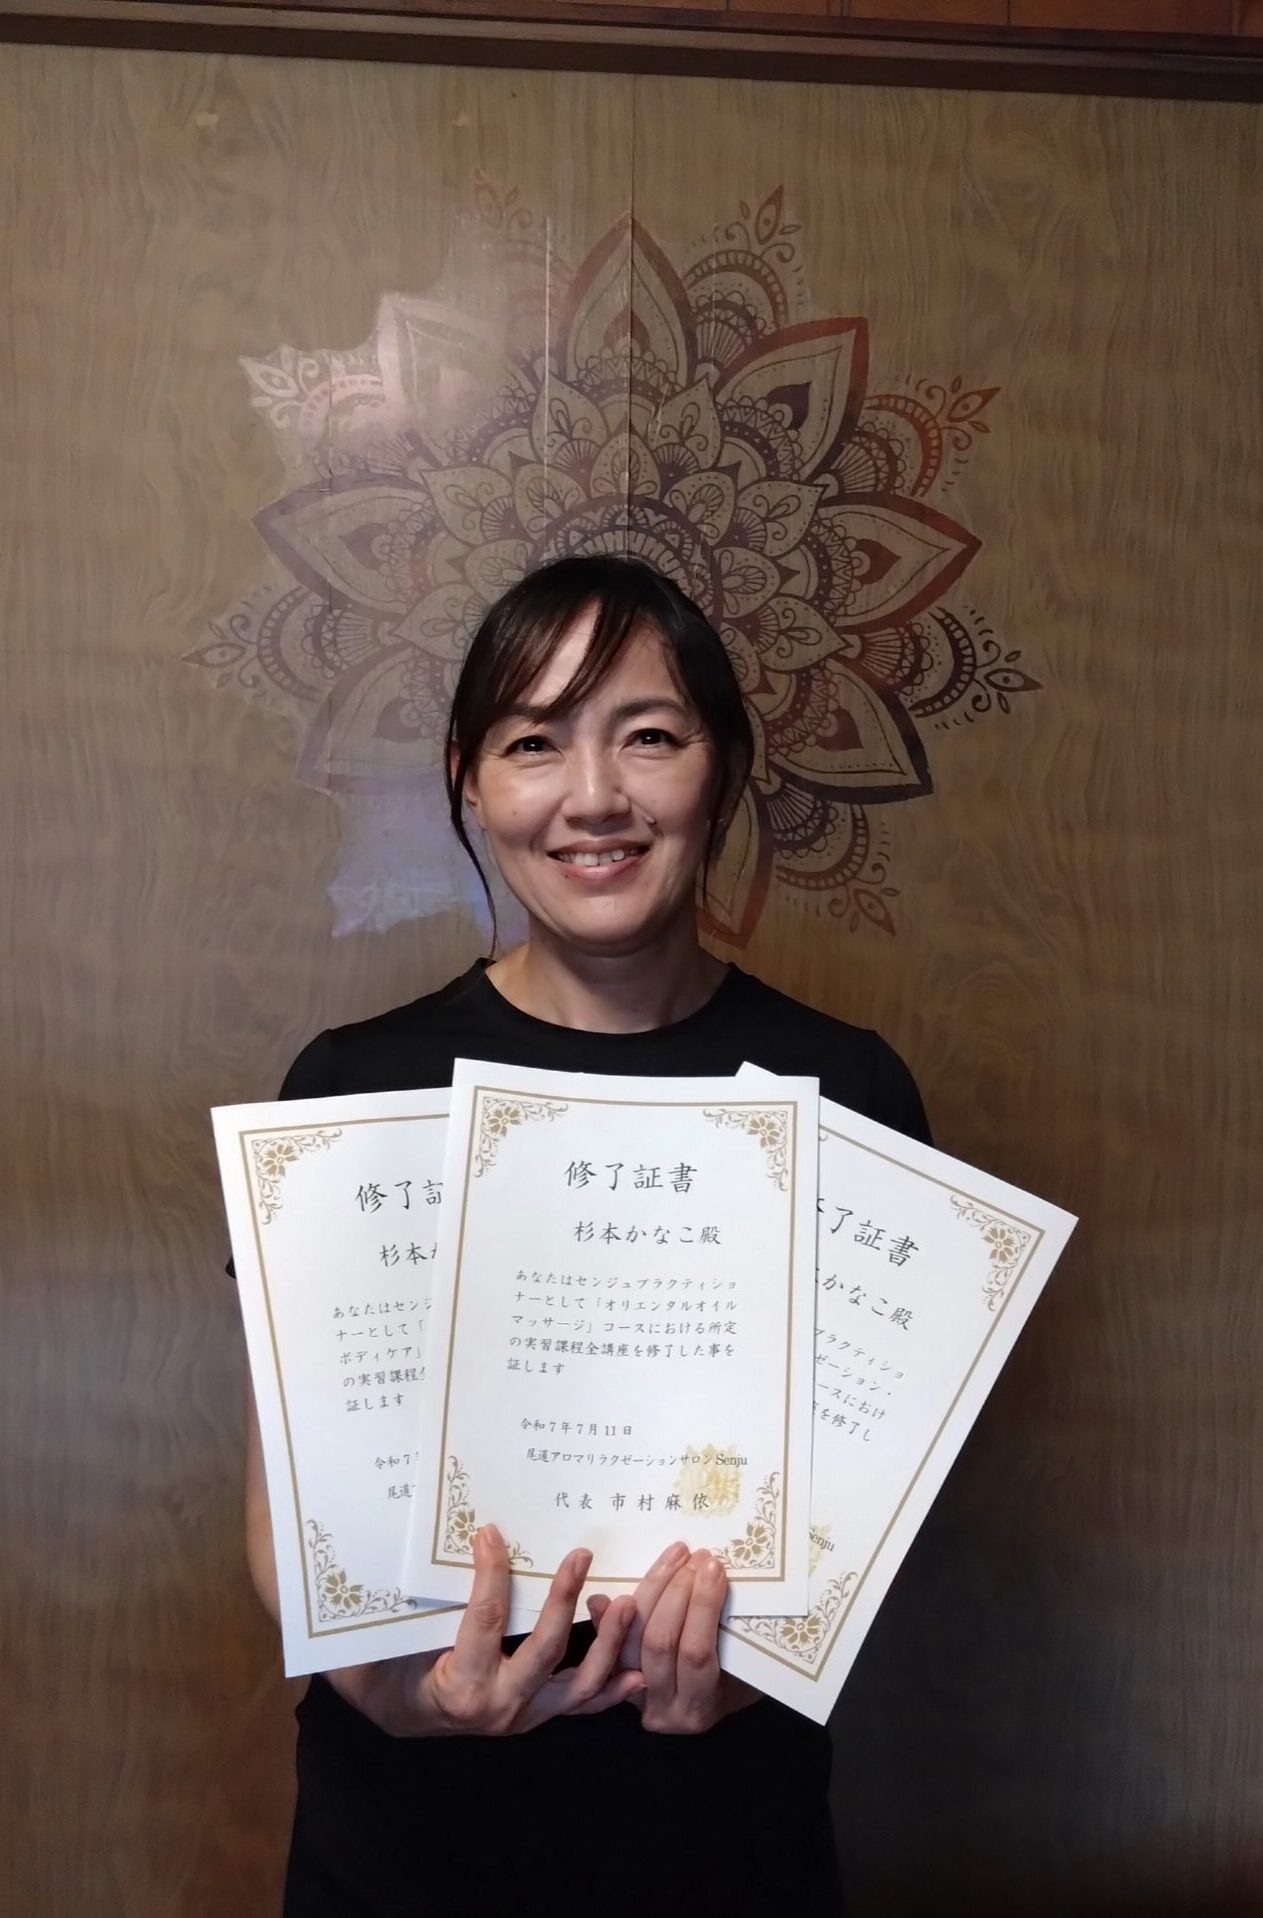 修了証
杉本
あなたはセンジ
ナーとして「
ボディケア」
の実習課程
証します
令和7
尾道
修了証書
杉本かなこ殿
あなたはセンジュプラクティショ
ナーとして「オリエンタルオイル
マッサージ」コースにおける所定
の実習課程全講座を修了した事を
証します
令和7年7月11日
尾道アロマリラクゼーションサロンSenju
代表 市村麻依
了証書
かなこ殿
プラクティショ
ゼーション・
ースにおけ
を修了し
Senju